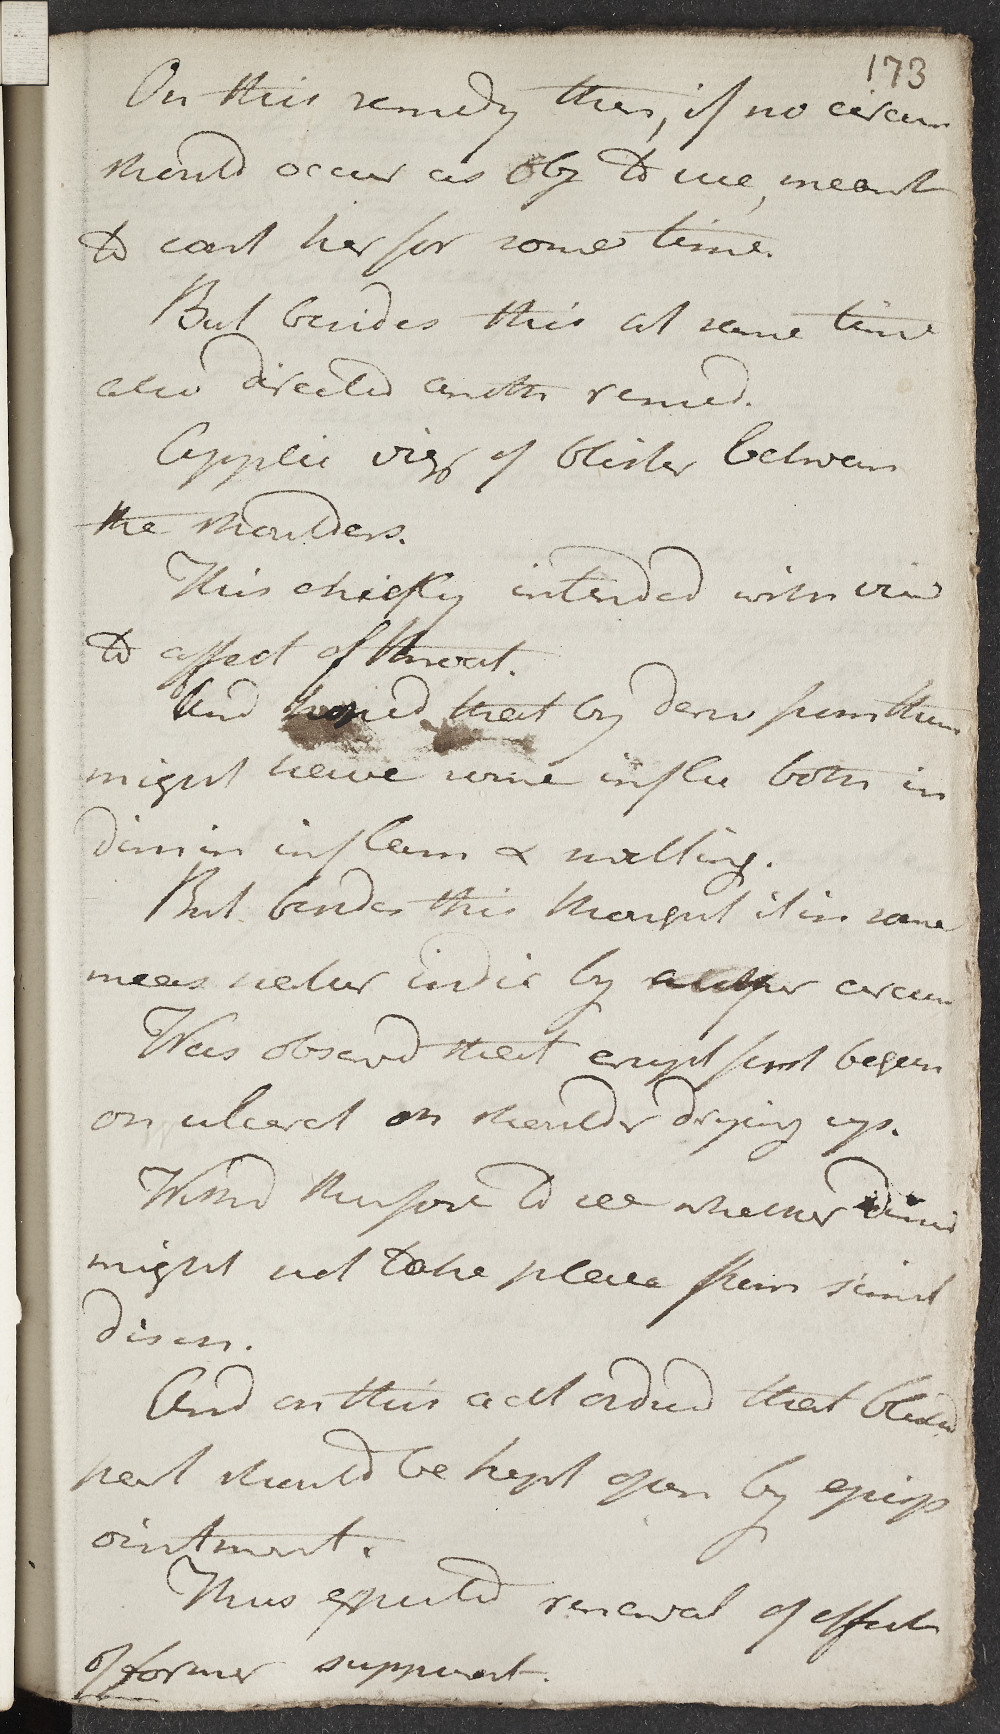 173
On this remedy then, if no circum
should occur as obj to use, meant
to cont her for some time.
But besides this at same time
also directed anoth remed.
Applic viz of blister between
the shoulders.
This chiefly intended with view
to affect of throat.
And hoped that by deriv from thence
might have some influ both in
dimin inflam & swelling.
But besides this thought it in some
meas natur indic by another circum
Was observd that erupt first began
on ulcerat on shoulder drying up.
Wishd therefore to see whether dimin
might not take place from simil
disch.
And on this acct ordered that blistd
part should be kept open by epispas
ointment.
Thus expected renewal of effects
of former suppurat.